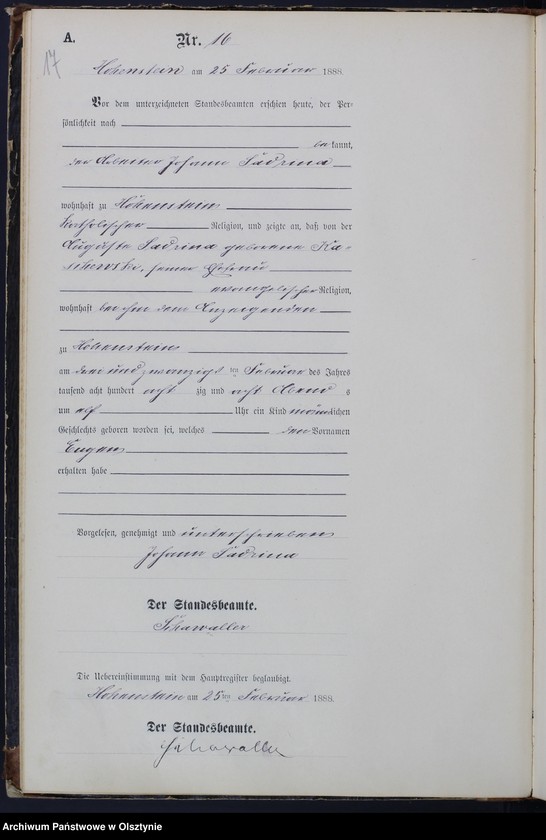 A.
Nr. 16
17
Hohenstein am 25 Februar 1888.
Vor dem unterzeichneten Standesbeamten erschien heute, der Per-
sönlichkeit nach
bekannt,
der Arbeiter Johann Sadrina
wohnhaft zu Hohenstein
katholischer Religion, und zeigte an, daß von der
Auguste Sadrina geborene Ka-
seiner Ehefrau
evangelischer Religion,
wohnhaft bei ihm dem Anzeigenden
zu Hohenstein
am drei und zwanzigsten Februar des Jahres
tausend acht hundert acht zig und acht Abend s
um elf Uhr ein Kind männlichen
Geschlechts geboren worden sei, welches den Vornamen
Eugen
erhalten habe
Vorgelesen, genehmigt und unterschrieben
Johann Sadrina
Der Standesbeamte.
Die Uebereinstimmung mit dem Hauptregister beglaubigt.
Hohenstein am 25ten Februar 1888.
Der Standesbeamte.
Archiwum Państwowe w Olsztynie